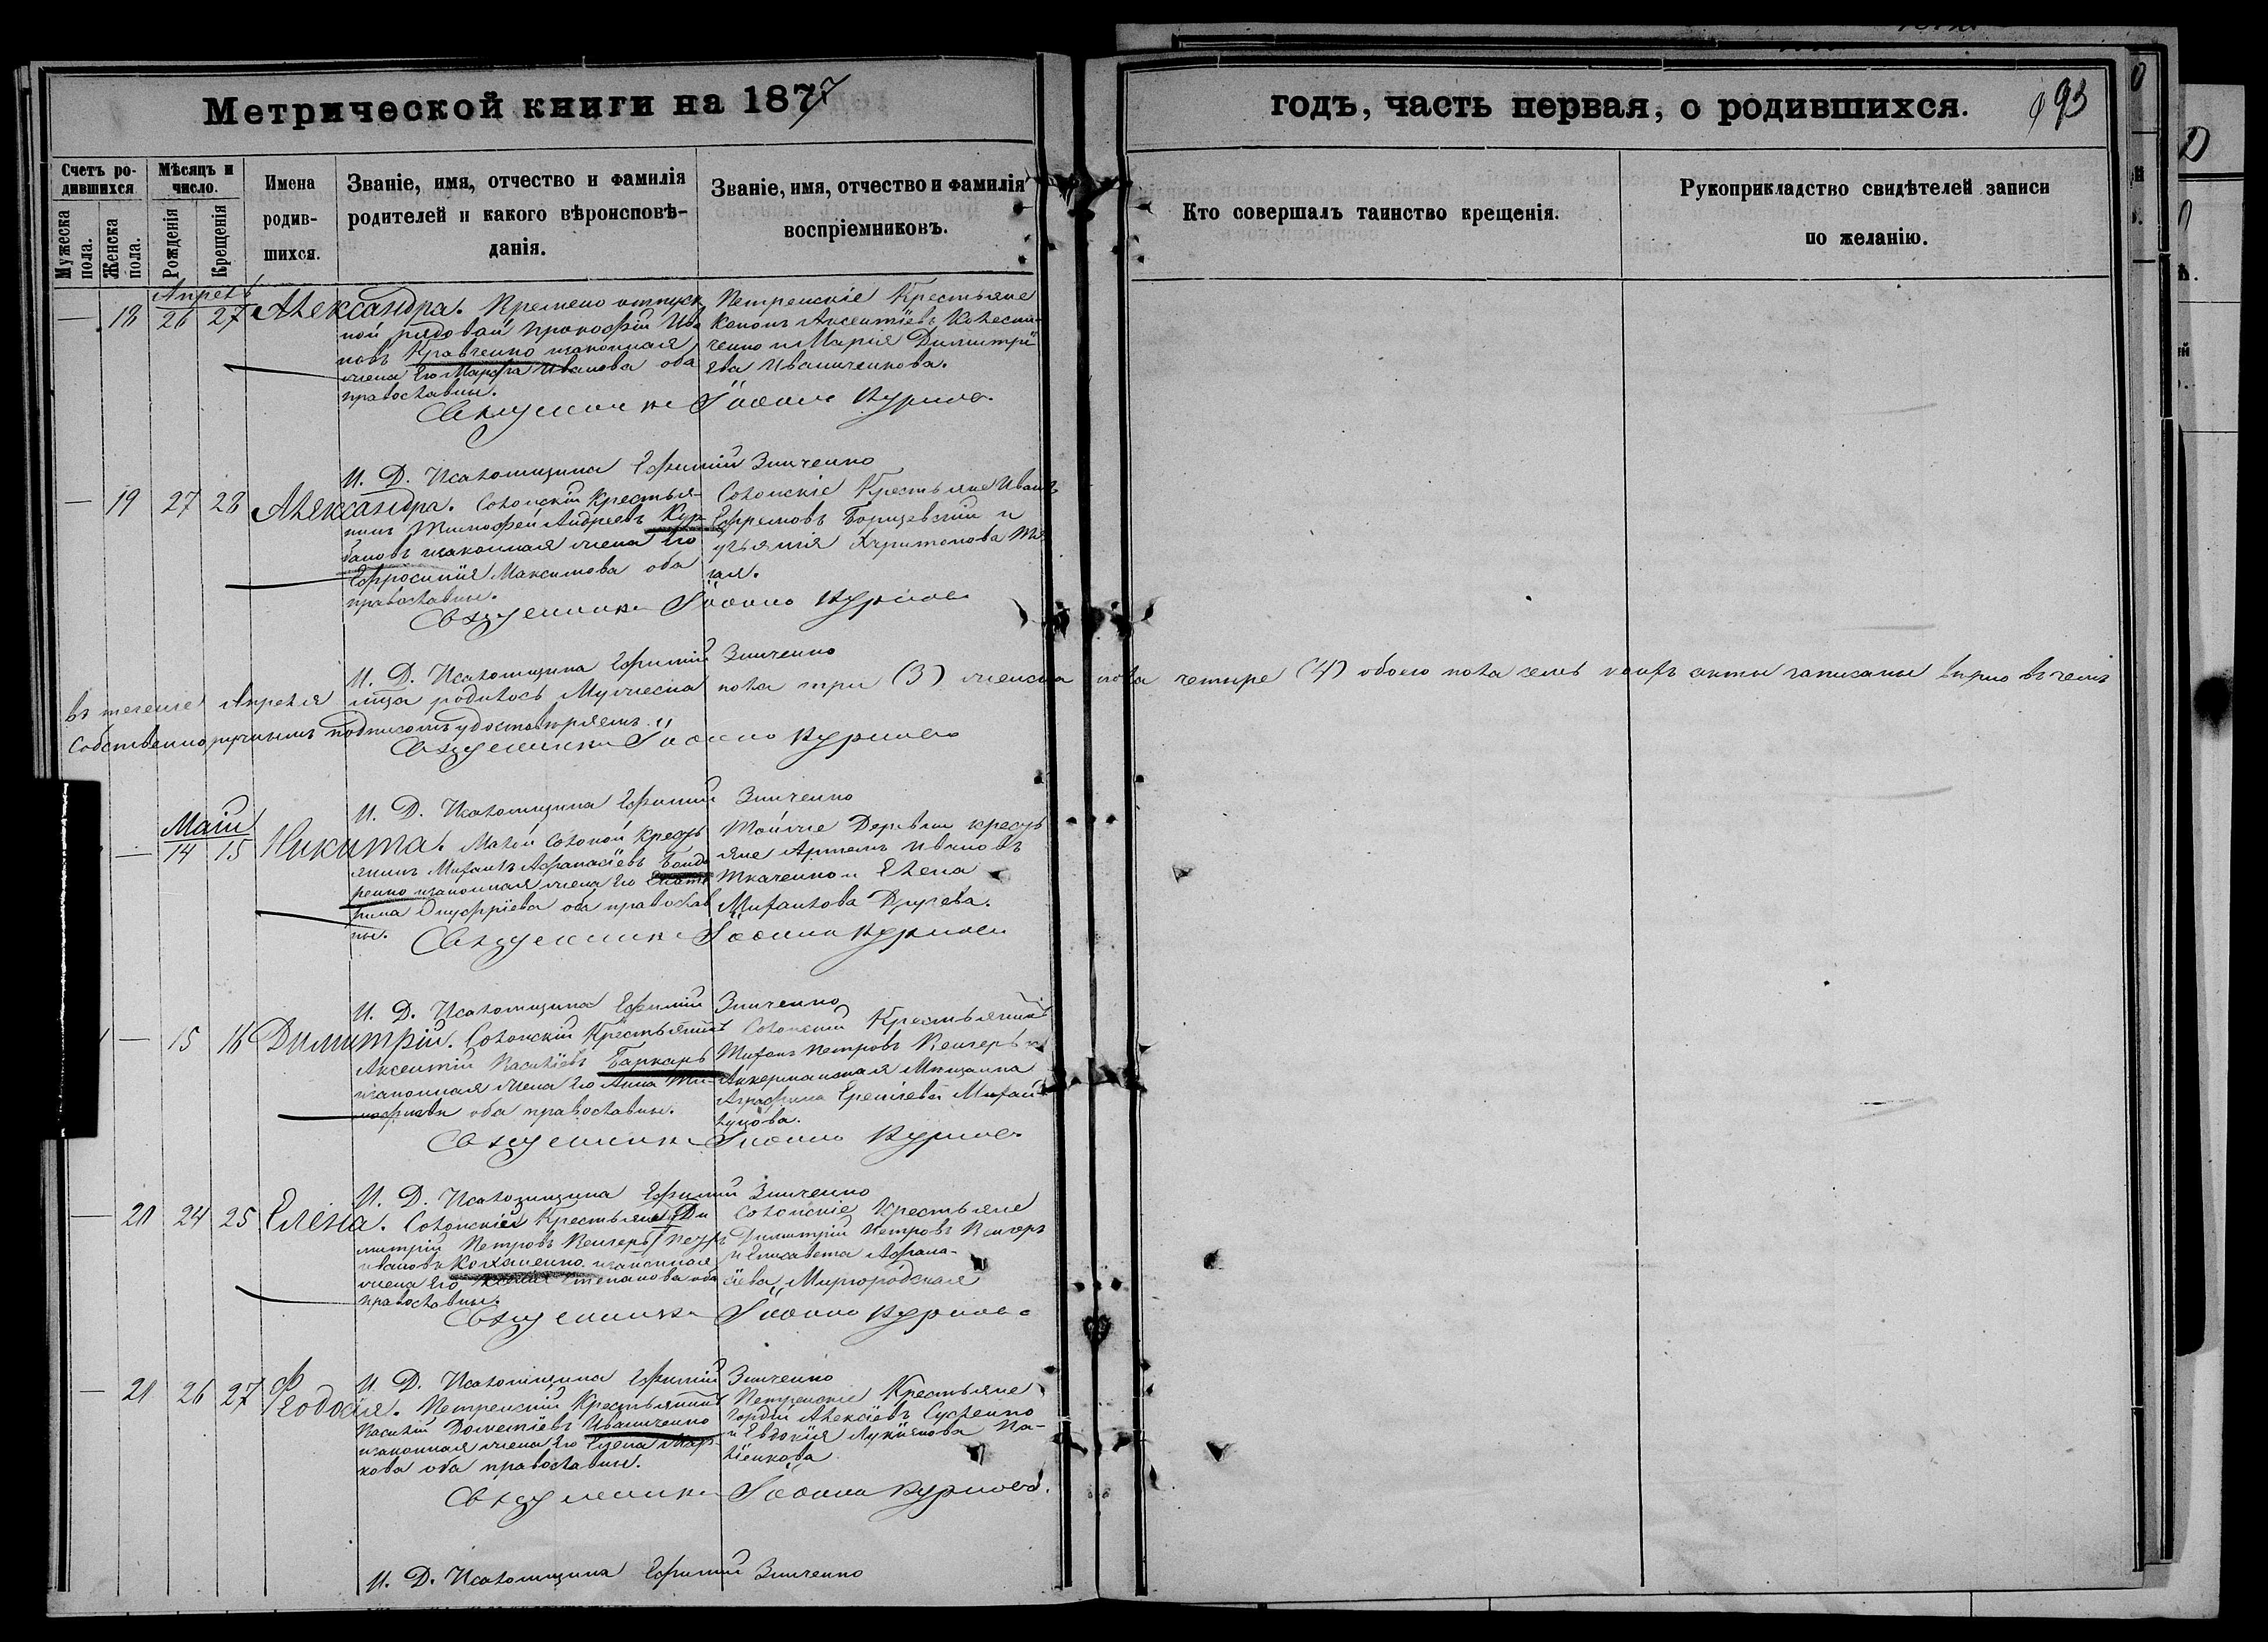 Метрической книги на 1877
годъ, часть первая, о родившихся.
93
Счетъ ро-
дившихся
Мѣсяцъ и
число.
Имена
родив-
шихся.
Званіе, имя, отчество и фамилія
родителей и какого вѣроисповѣ-
данія.
Званіе, имя, отчество и фамилія
воспріемниковъ.
Кто совершалъ таинство крещенія.
Рукоприкладство свидѣтелей записи
по желанію.
Мужеска
пола.
Женска
пола.
Рожденія
Крещенія
Апрель
— 18 26 27 Александра. Времено отпуск
ной рядовой Прокофій Ива
новъ Кравченко законная
жена Его Марфа Иванова оба
православны.
Петренскіе Крестьяне
Кононъ Аксентіевъ Колесни-
ченко и Марія Димитрі
ева Иваниченкова.
Священникъ Іоаннъ
И. Д. Псаломщика Ефимій Зинченко
— 19 27 28 Александра. Солонскій Крестья-
нинъ Тимофей Андреевъ Кур
бановъ законная жена Его
Ефросинія Максимова оба
православны.
Солонскіе Крестьяне Иванъ
Ефремовъ Борщевскій и
Харитонова
гая.
Священникъ Іоаннъ
И. Д. Псаломщика Ефимій Зинченко
въ теченіе Апреля м͠ца родилось Мужеска пола три (3) женска пола четыре (4) обоего пола семь коихъ акты записаны верно въ чемъ
Собственноручнымъ подписомъ удостоверяемъ.
Священникъ Іоаннъ
И. Д. Псаломщика Ефимій Зинченко
Маій
— 14 15 Никита. Малой Солоной кресть
янинъ Михаилъ Афанасіевъ Бонда
ренко законная жена Его Екате
рина Онуфріева оба православ
ны.
Тойже Деревни кресть
яне Артемъ Ивановъ
Ткаченко и Елена
Михаилова
Священникъ Іоаннъ
И. Д. Псаломщика Ефимій Зинченко
— 15 16 Димитрій. Солонскій Крестьянинъ
Аксентій Василіевъ Баркарь
законная жена Его Анна Ти-
мофиева оба православны.
Солонскій Крестьянинъ
Тихонъ Петровъ Венгеръ и
Аккерманская Мещанка
Аграфина Ереміева Михай
луцова.
Священникъ Іоаннъ
И. Д. Псаломщика Ефимій Зинченко
— 20 24 25 Елена. Солонскіе Крестьяне Ди
митрій Петровъ Венгеръ Петръ
Ивановъ Коханенко законная
жена Его Степанова оба
православны.
Солонскіе Крестьяне
Димитрій Петровъ Венгеръ
и Елисавета Афана-
сіева Миргородская
Священникъ Іоаннъ
И. Д. Псаломщика Ефимій Зинченко
— 21 26 27 Феодосія. Петренскій Крестьянинъ
Василій Дометіевъ Иваниченко
законная жена Его Елена Мар-
кова оба православны.
Петренскіе Крестьяне
Гордій Алексіевъ Сусленко
и Евдокія Лукіянова Па-
ліенкова
Священникъ Іоаннъ
И. Д. Псаломщика Ефимій Зинченко